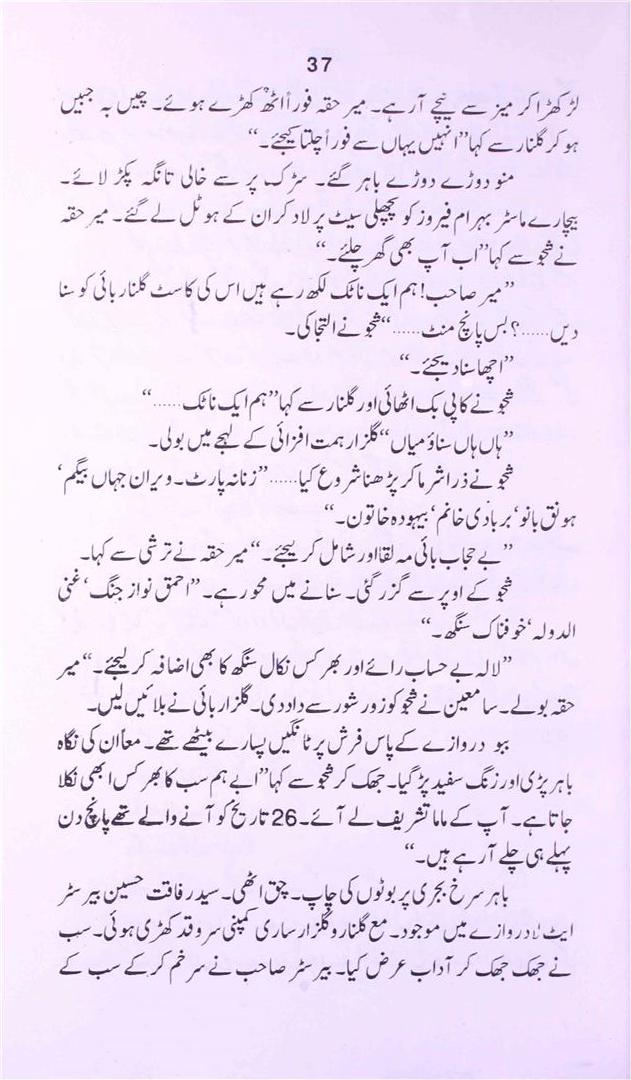 37
لڑکھڑا کر میز سے نیچے آ رہے۔ میر حقہ فوراً اٹھ کھڑے ہوئے۔ چیں بہ جبیں
ہو کر گلنار سے کہا ”انہیں یہاں سے فوراً چلتا کیجئے۔“
منو دوڑے دوڑے باہر گئے۔ سڑک پر سے خالی تانگہ پکڑ لائے۔
بیچارے ماسٹر بہرام فیروز کو پچھلی سیٹ پر لاد کر ان کے ہوٹل لے گئے۔ میر حقہ
نے شجو سے کہا ”اب آپ بھی گھر چلئے۔“
”میر صاحب! ہم ایک ناٹک لکھ رہے ہیں اس کی کاسٹ گلنار بائی کو سنا
دیں......؟ بس پانچ منٹ......“ شجو نے التجا کی۔
”اچھا سنا دیجئے۔“
شجو نے کاپی بک اٹھائی اور گلنار سے کہا ”ہم ایک ناٹک......“
”ہاں ہاں سناؤ میاں“ گلزار ہمت افزائی کے لہجے میں بولی۔
شجو نے ذرا شرما کر پڑھنا شروع کیا......”زنانہ پارٹ۔ ویران جہاں بیگم‘
ہونق بانو‘ بربادی خانم‘ بیہودہ خاتون۔“
”بے حجاب بائی مہ لقا اور شامل کر لیجئے۔“ میر حقہ نے ترشی سے کہا۔
شجو کے اوپر سے گزر گئی۔ سنانے میں محو رہے۔ ”احمق نواز جنگ‘ غنی
الدولہ‘ خوفناک سنگھ۔“
”لالہ بے حساب رائے اور بھرکس نکال سنگھ کا بھی اضافہ کر لیجئے۔“ میر
حقہ بولے۔ سامعین نے شجو کو زور شور سے داد دی۔ گلزار بائی نے بلائیں لیں۔
ببو دروازے کے پاس فرش پر ٹانگیں پسارے بیٹھے تھے۔ معاً ان کی نگاہ
باہر پڑی اور رنگ سفید پڑ گیا۔ جھک کر شجو سے کہا ”ابے ہم سب کا بھرکس ابھی نکلا
جاتا ہے۔ آپ کے ماما تشریف لے آئے۔ 26 تاریخ کو آنے والے تھے پانچ دن
پہلے ہی چلے آ رہے ہیں۔“
باہر سرخ بجری پر بوٹوں کی چاپ۔ چق اٹھی۔ سید رفاقت حسین بیرسٹر
ایٹ لا دروازے میں موجود۔ مع گلنار و گلزار ساری کمپنی سرو قد کھڑی ہوئی۔ سب
نے جھک جھک کر آداب عرض کیا۔ بیرسٹر صاحب نے سر خم کر کے سب کے